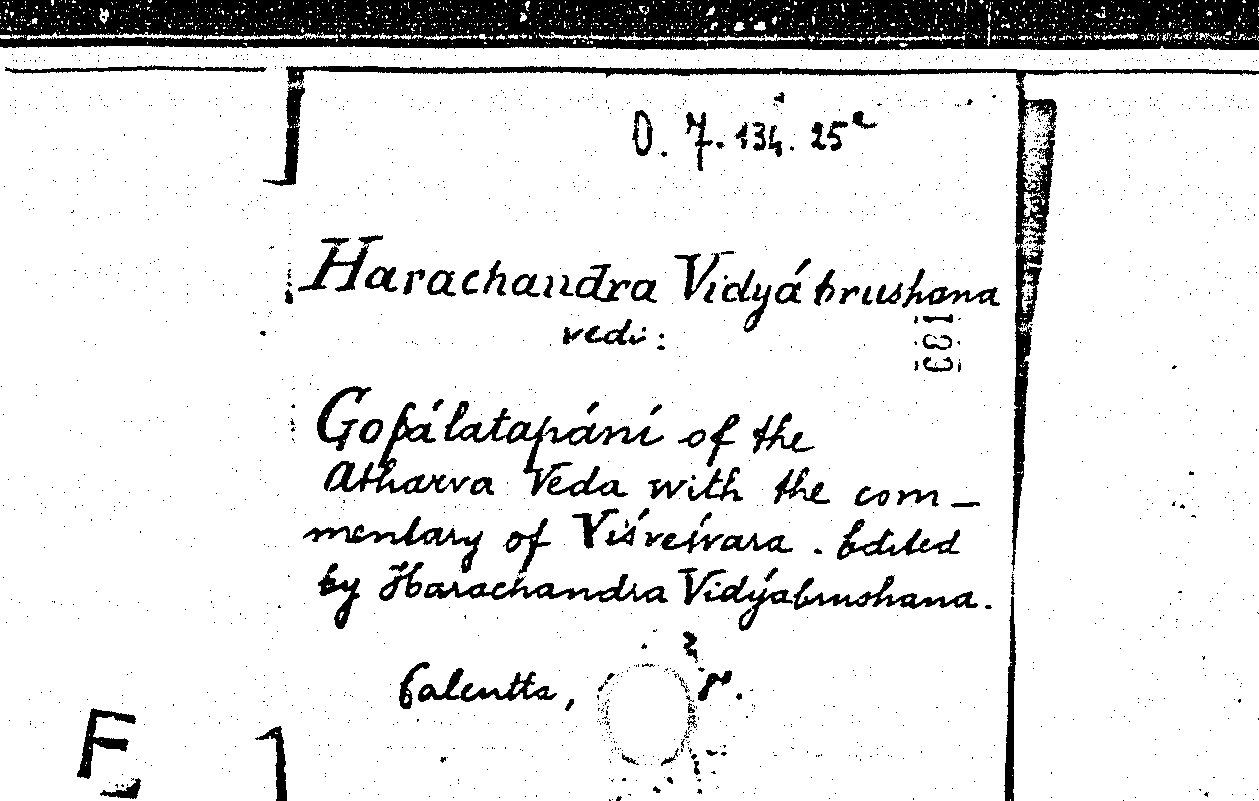 O. 7. 134. 25
Harachandra Vidyábrushana
vedi:
Gopálatapání of the
Atharva Veda with the com-
mentary of Viśveśvara. Edited
by Harachandra Vidýabrushana.
Calcutta,
F